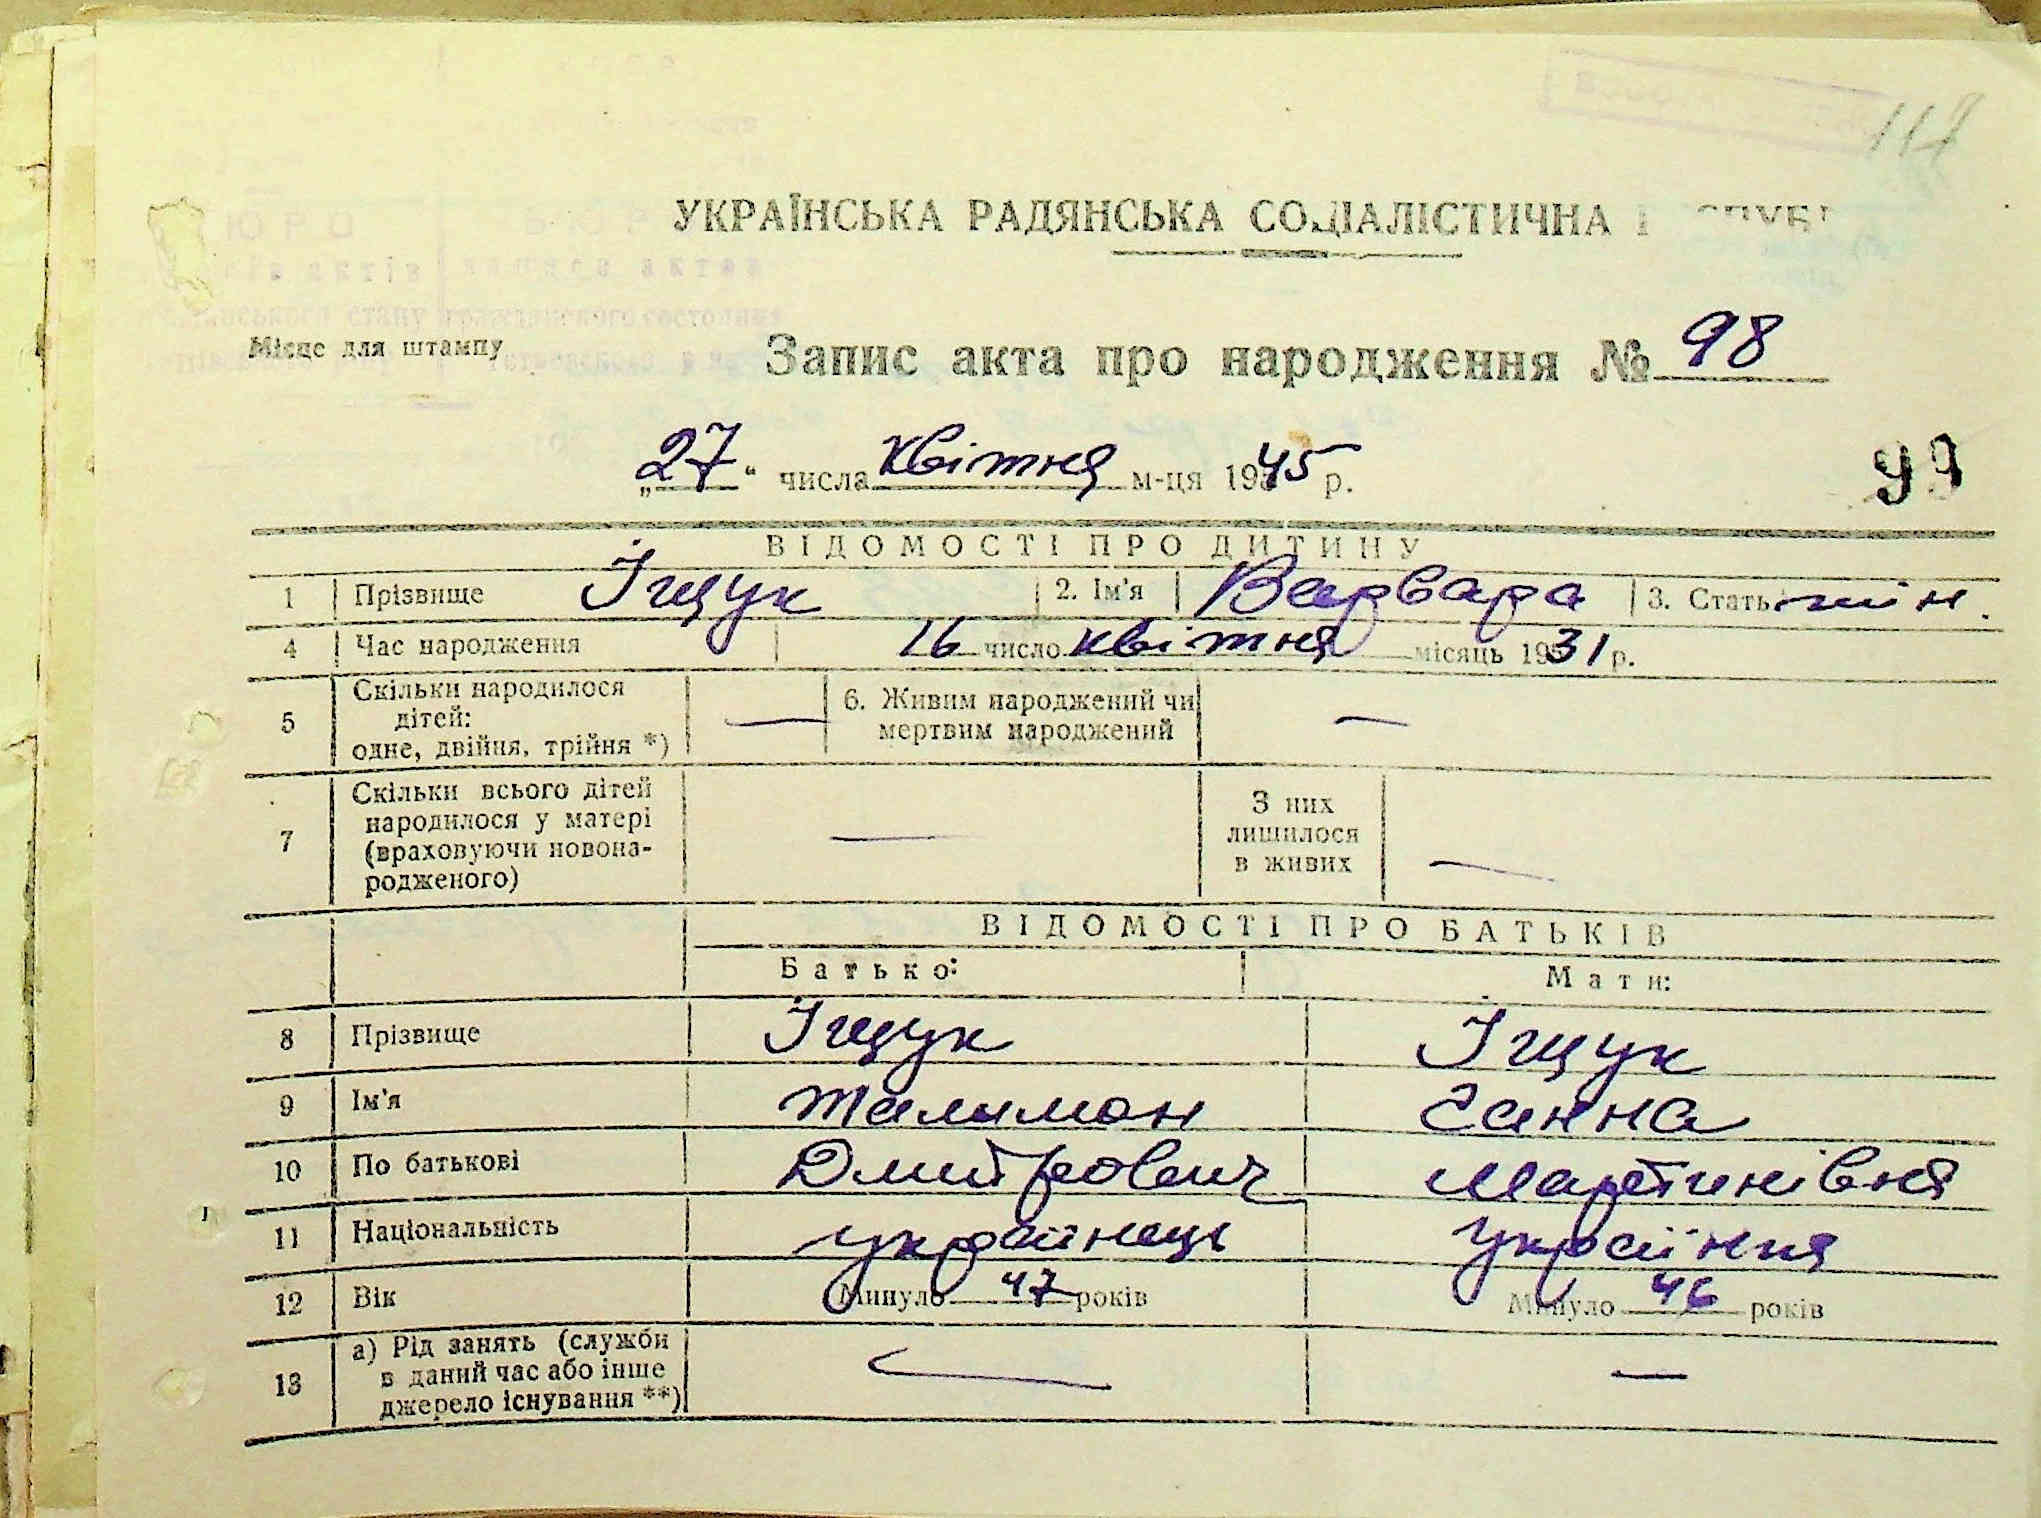 117
УКРАЇНСЬКА РАДЯНСЬКА СОЦІАЛІСТИЧНА
Місце для штампу
Запис акта про народження № 98
„27“ числа квітня м-ця 1945 р.
99
ВІДОМОСТІ ПРО ДИТИНУ
1 Прізвище Іщук 2. Ім'я Варвара 3. Стать жін.
4 Час народження 16 число квітня місяць 1931 р.
5 Скільки народилося дітей: одне, двійня, трійня *) — 6. Живим народжений чи мертвим народжений —
7 Скільки всього дітей народилося у матері (враховуючи новонародженого) — З них лишилося в живих —
ВІДОМОСТІ ПРО БАТЬКІВ
Батько: Мати:
8 Прізвище Іщук Іщук
9 Ім'я Талимон Ганна
10 По батькові Дмитрович Мартинівна
11 Національність українець українка
12 Вік Минуло 47 років Минуло 46 років
13 а) Рід занять (служби в даний час або інше джерело існування **) — —